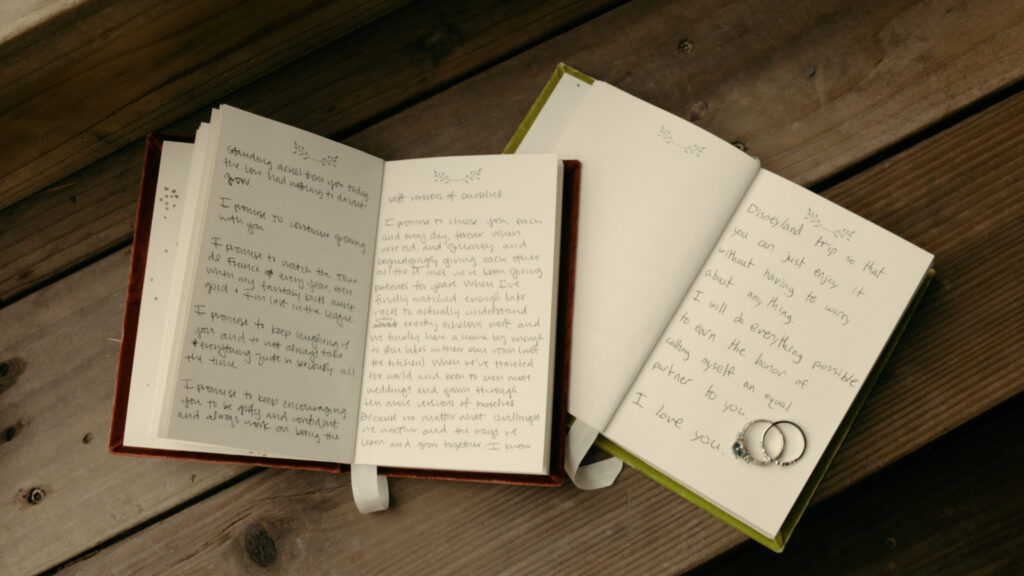 standing across from you today
the love had nothing to do but
grow.
I promise to continue growing
with you
I promise to watch the Tour
de France every year, even
when my fantasy picks aren't
good & I'm last in the league
I promise to keep laughing w/
you and to not always take
everything quite so seriously all
the time
I promise to keep encouraging
you to be goofy and confident
and always work on being the
best versions of ourselves
I promise to choose you, each
and every day, forever. When
we're old and grumpy and
begrudgingly giving each other
all the we've been giving
patients for years. When I've
finally watched enough bike
races to actually understand
exactly echelons work, and
we finally have a home big enough
to store bikes in their own room (not
the kitchen). When we've traveled
the world and been to even more
weddings and grown through
ten more versions of ourselves
Because no matter what challenges
we weather and the ways we
learn and grow together, I know
Disneyland trip so that
you can just enjoy it
without having to worry
about anything.
I will do everything possible
to earn the honor of
calling myself an equal
partner to you
I love you.